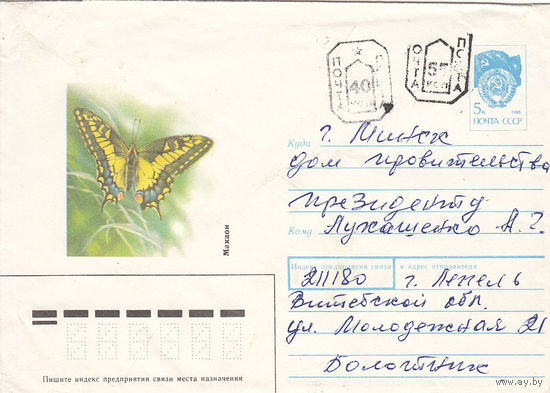 ПОЧТА
40 коп
ПОЧТА
55 коп
5к 1988
ПОЧТА СССР
Куда г. Минск
дом правительства
президенту
Кому Лукашенко А. Г.
Махаон
Индекс предприятия связи и адрес отправителя
211180 г. Лепель
Витебской обл.
ул. Молодежная 21
Болотник
Пишите индекс предприятия связи места назначения
www.ay.by